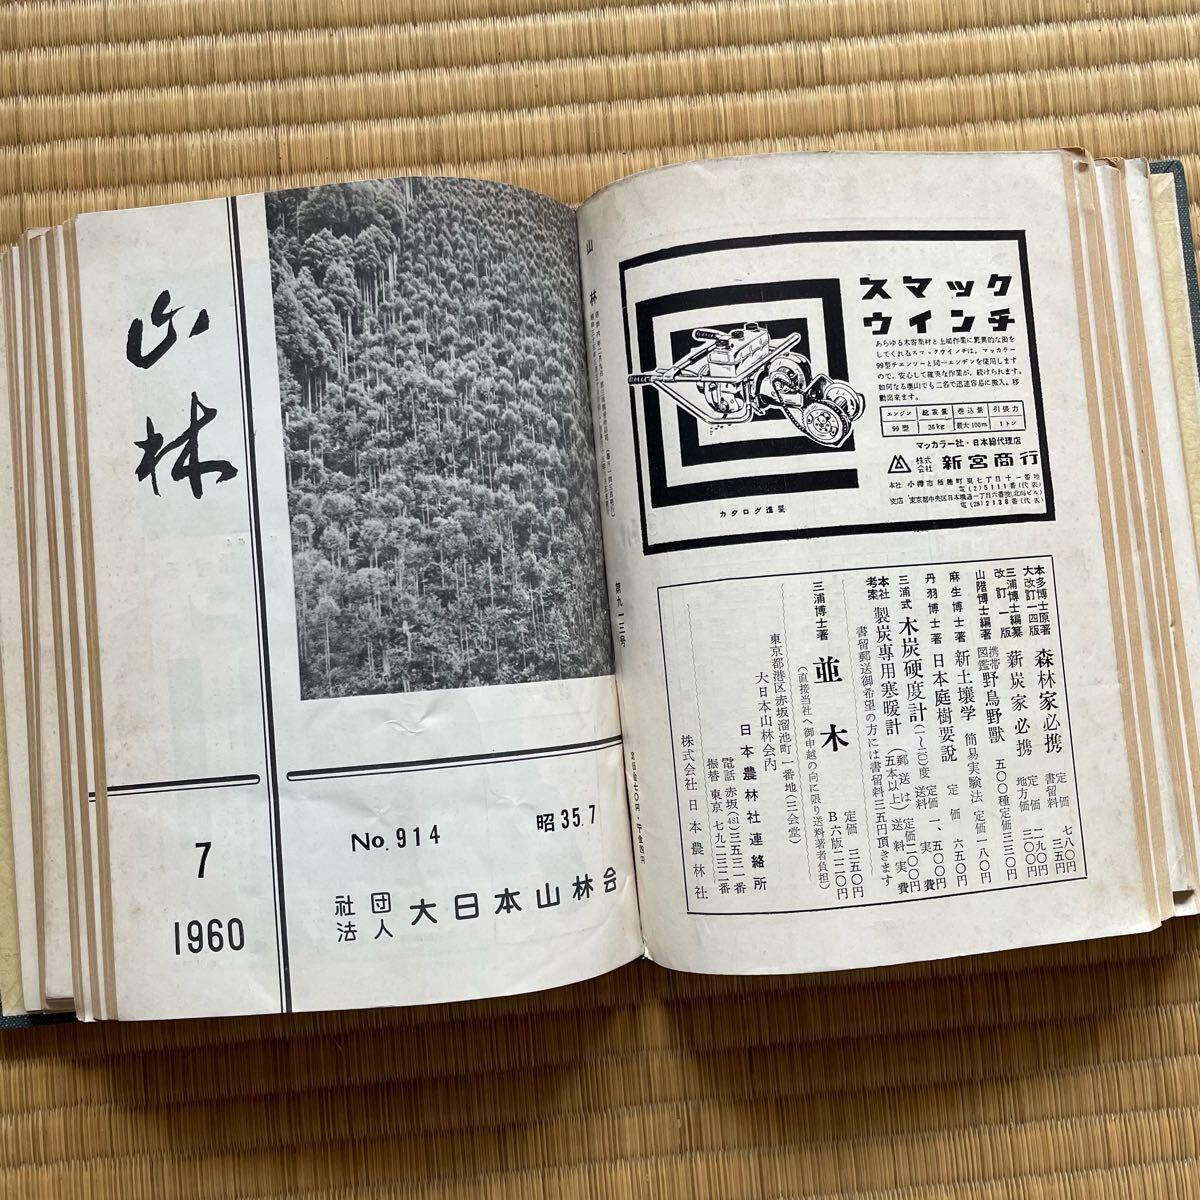 山林
7
1960
No. 914
昭35.7
社団法人 大日本山林会
山林
第九一三号
スマック
ウインチ
あらゆる木寄集材と土場作業に驚異的な働を
してくれるスマックウインチは、マッカラー
99型チエンソーと同一エンヂンを使用します
ので、安心して確実な作業が、続けられます。
如何なる奥山でも二名で迅速容易に搬入、移
動出来ます。
エンジン 総重量 巻込量 引張力
99型 26kg 最大100m 1トン
マッカラー社・日本総代理店
株式会社 新宮商行
本社 小樽市稲穂町東七丁目十一番地
電(2)5111番(代表)
支店 東京都中央区日本橋通一丁目六番地(北海ビル)
電(28)2136番(代表)
カタログ進呈
本多博士原著 大改訂一四版 森林家必携 定価 七八〇 書留料 三五円
三浦博士編纂 改訂一版 薪炭家必携 定価 二九〇 地方価 三〇〇円
山階博士編著 携帯図鑑 野鳥野獣 五〇〇種 定価三三〇円
麻生博士著 新土壌学 簡易実験法 定価一八〇円
丹羽博士著 日本庭樹要説 定価 六五〇円
三浦式 木炭硬度計 (一〜二〇)度 定価一、五〇〇円 送料 実費
本社考案 製炭専用寒暖計 (郵送は五本以上) 定価二〇〇円 送料実費
書留郵送御希望の方には書留料三五円頂きます
三浦博士著 並木 定価 三五〇円 B六版 二二〇円
(直接当社へ御申越の向に限り送料著者負担)
東京都港区赤坂溜池町一番地(三会堂)
大日本山林会内
日本農林社連絡所
電話 赤坂(481)三五三一番
振替 東京 七九二三二番
株式会社 日本農林社